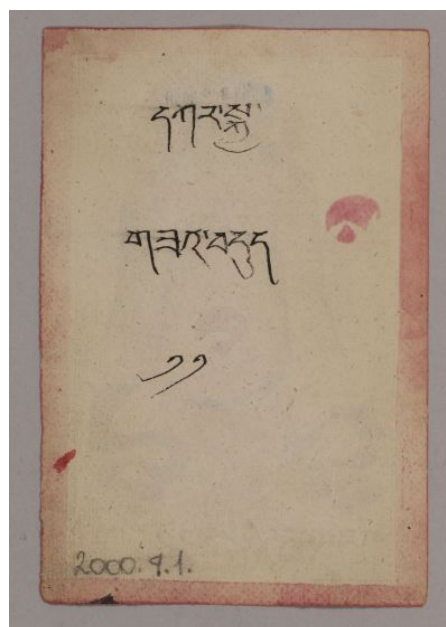 དཀར་སྐྱ་
གཟའ་བདུད
༡༡
2000.9.1.